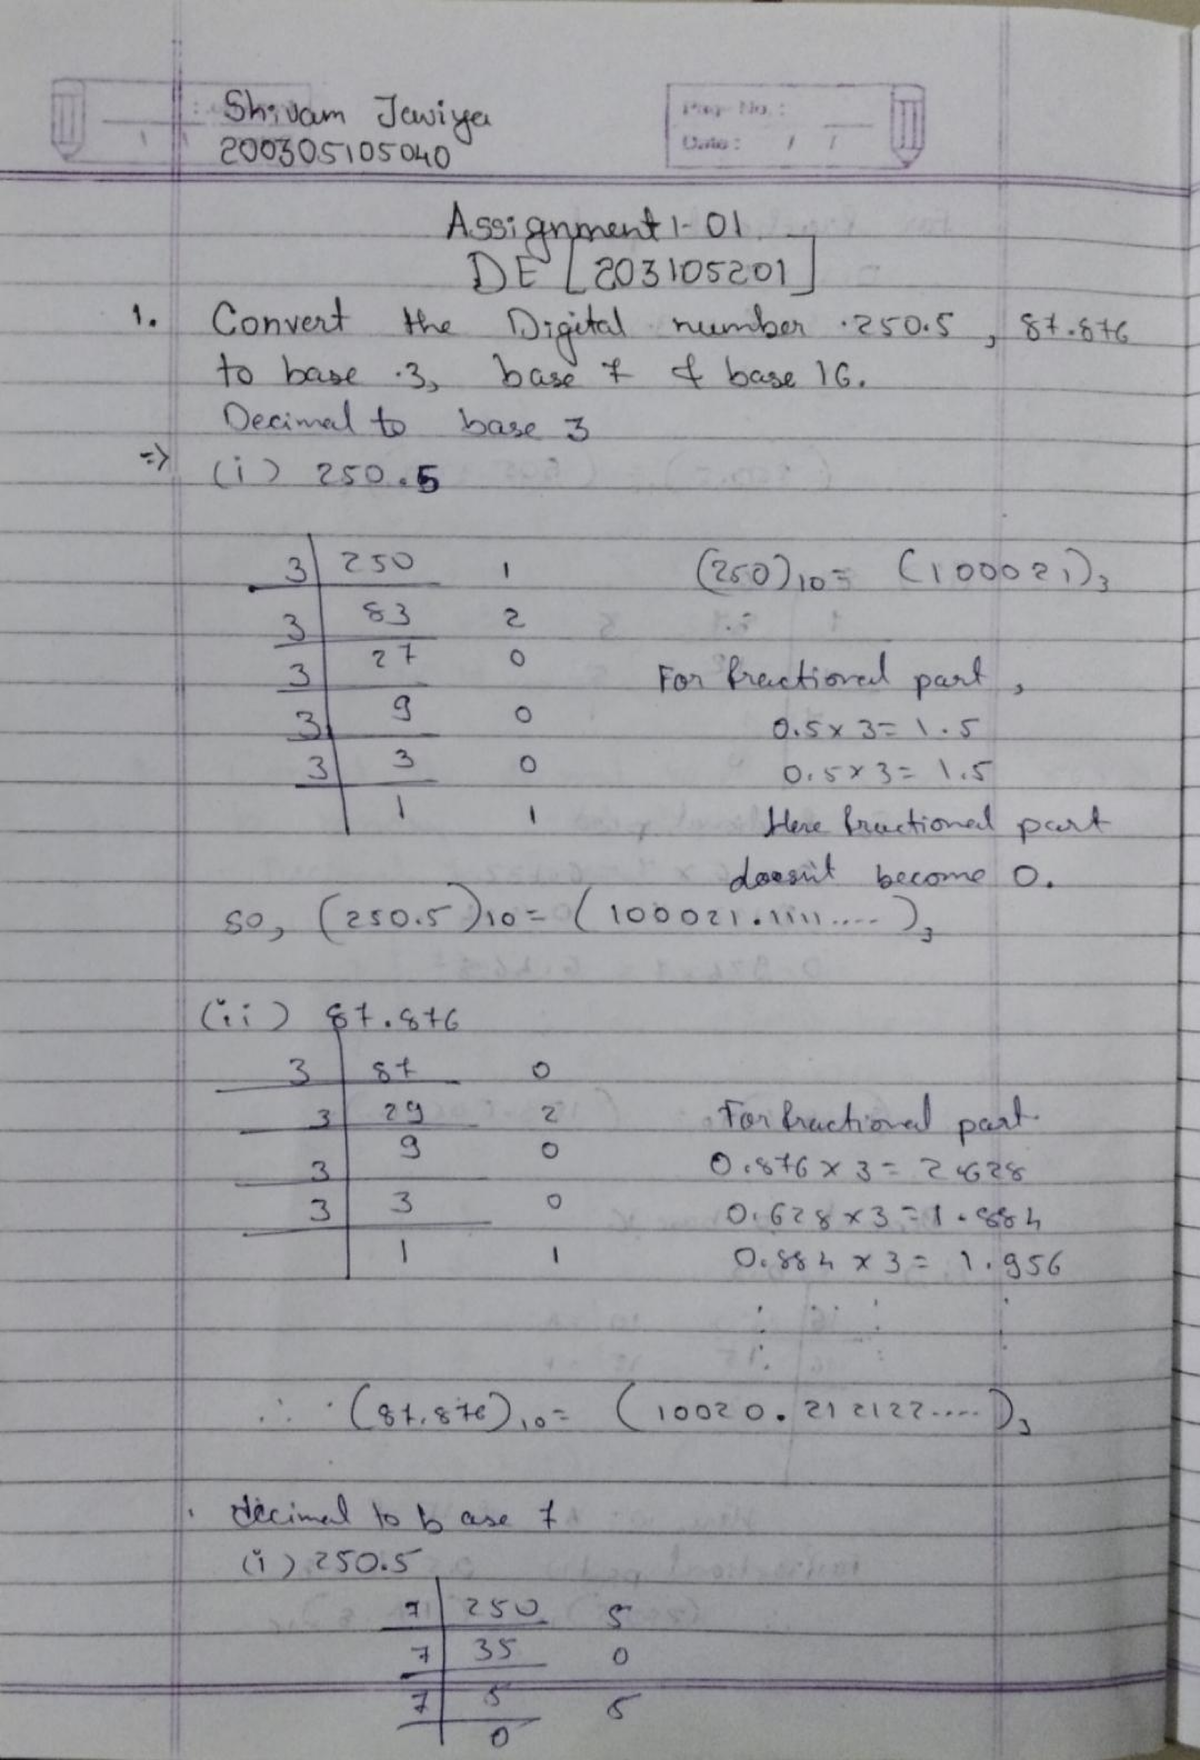 Shivam Jawiya
200305105040
Page No.:
Date: / /
Assignment 1-01
DE [203105201]
1. Convert the Digital number .250.5, 87.876
to base .3, base 7 & base 16.
Decimal to base 3
=> (i) 250.5
3 250 1 (250)10= (100021)3
3 83 2
3 27 0 For fractional part,
3 9 0 0.5x3=1.5
3 3 0 0.5x3=1.5
1 1 Here fractional part
doesn't become 0.
so, (250.5)10=(100021.1111.....)3
(ii) 87.876
3 87 0
3 29 2 For fractional part.
3 9 0 0.876x3=2.628
3 3 0 0.628x3=1.884
1 1 0.884x3=1.956
∴ (87.876)10= (10020.212122.....)3
decimal to base 7
(i) 250.5
7 250 5
7 35 0
7 5 5
0